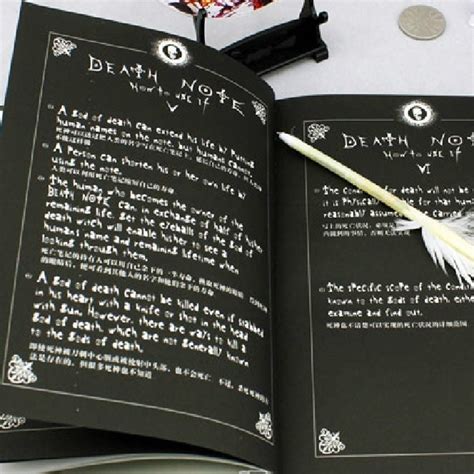 DEATH NOTE
How to use it
V
A god of death can extend his life by putting
human names on the note, but humans cannot.
死神可以透过把人类的名字写在死亡笔记上，延长自己的寿命
A person can shorten his or her own life by
using the note.
人类可以使用死亡笔记缩短自己的寿命
The human who becomes the owner of the
DEATH NOTE can, in exchange of half of his/her
remaining life, get the eyeballs of the god of
death which will enable him/her to see a
human's name and remaining lifetime when
looking through them.
A god of death cannot be killed even if stabbed
in his heart with a knife or shot in the head
with a gun. However, there are ways to kill a
god of death, which are not generally known
to the gods of death.
即使死神被刀刺中心脏或被枪射中头部，也不会死亡，不过，杀死死神的
法是存在的，但很多死神也不知道
DEATH NOTE
How to use it
VI
The conditions for death will not be
it is physically possible for that human
reasonably assumed to be carried
The specific scope of the condition
known to the gods of death either
examine and find out.